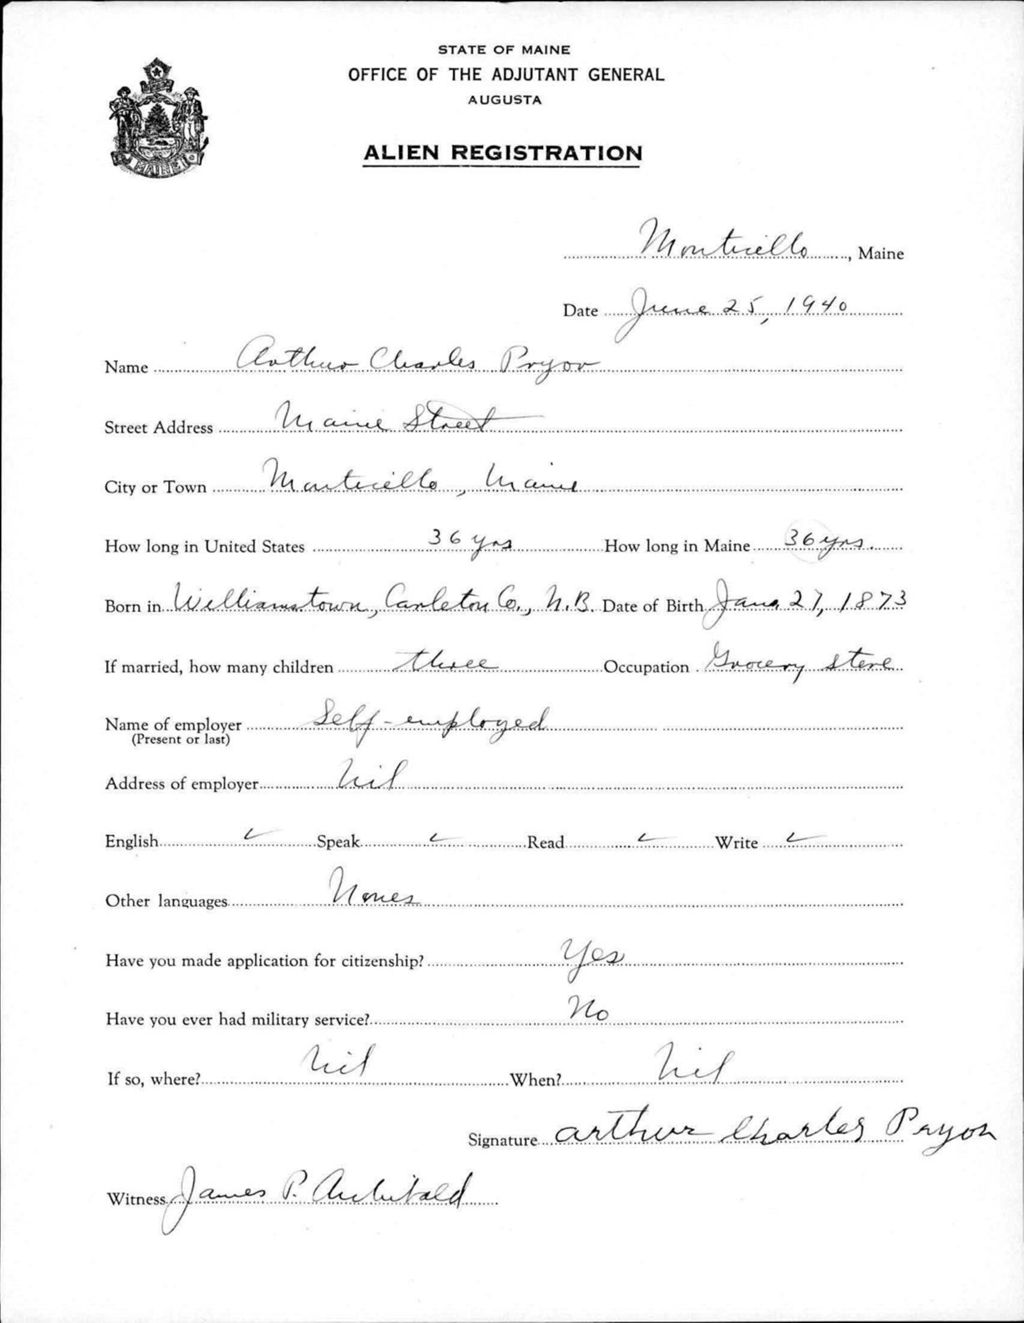 STATE OF MAINE
OFFICE OF THE ADJUTANT GENERAL
AUGUSTA
ALIEN REGISTRATION
MAINE
Monticello, Maine
Date June 25, 1940
Name Arthur Charles Pryor
Street Address Maine Street
City or Town Monticello, Maine
How long in United States 36 yrs How long in Maine 36 yrs.
Born in Williamstown, Carleton Co., N.B. Date of Birth Jan. 27, 1873
If married, how many children three Occupation Grocery Store
Name of employer Self-employed
(Present or last)
Address of employer Nil
English ✓ Speak ✓ Read ✓ Write ✓
Other languages Nones
Have you made application for citizenship? Yes
Have you ever had military service? No
If so, where? Nil When? Nil
Signature Arthur Charles Pryor
Witness James P. Archibald